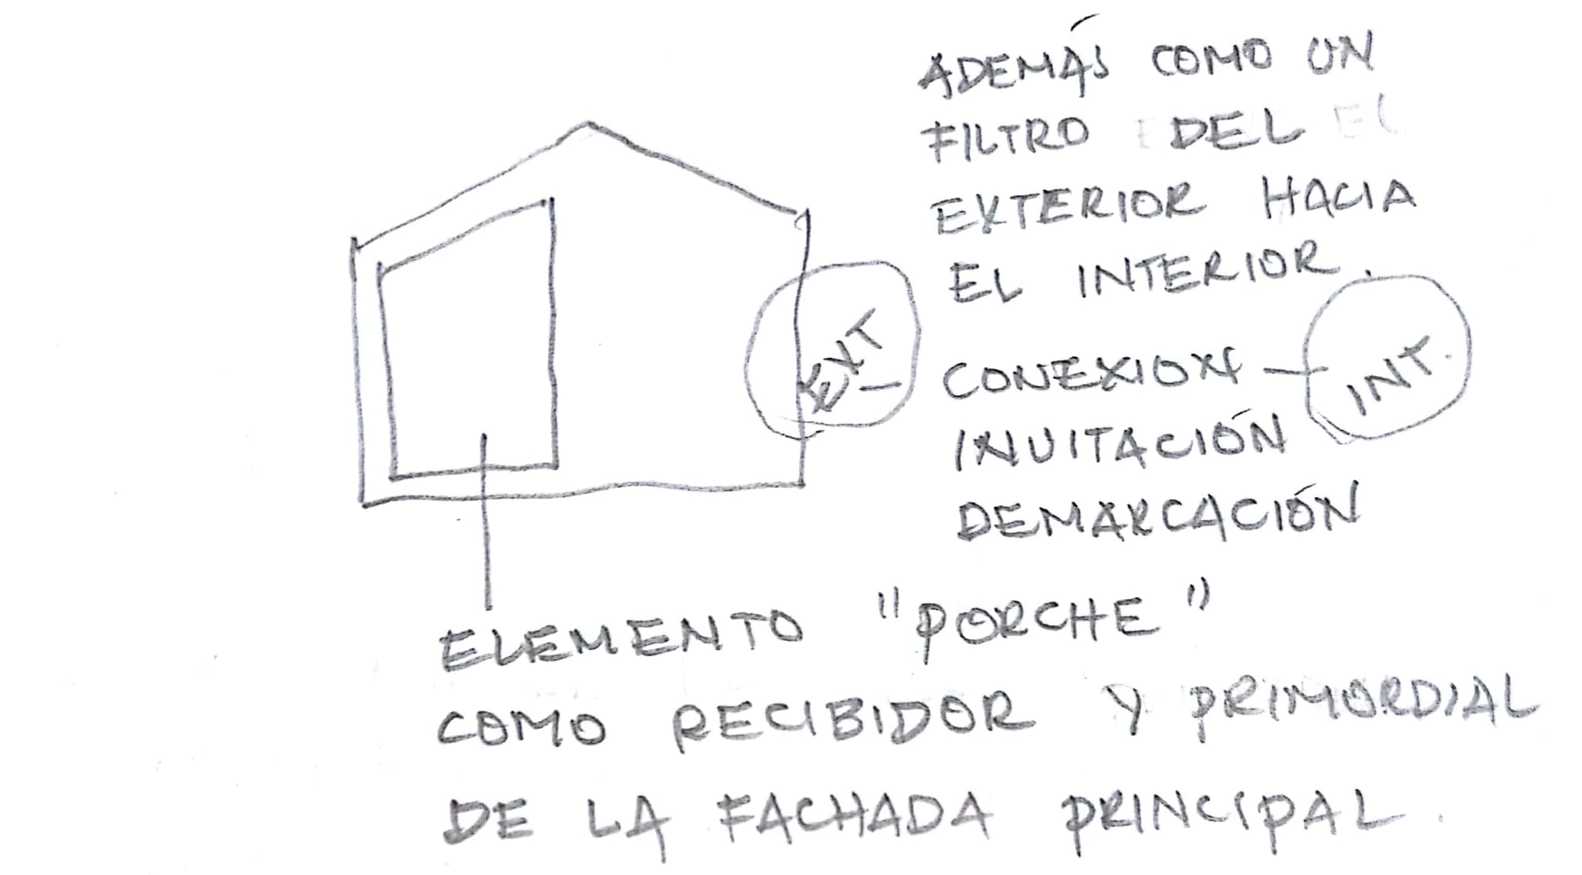 ADEMÁS COMO UN
FILTRO DEL
EXTERIOR HACIA
EL INTERIOR.
EXT — CONEXION — INT.
INVITACIÓN
DEMARCACIÓN
ELEMENTO "PORCHE"
COMO RECIBIDOR Y PRIMORDIAL
DE LA FACHADA PRINCIPAL.